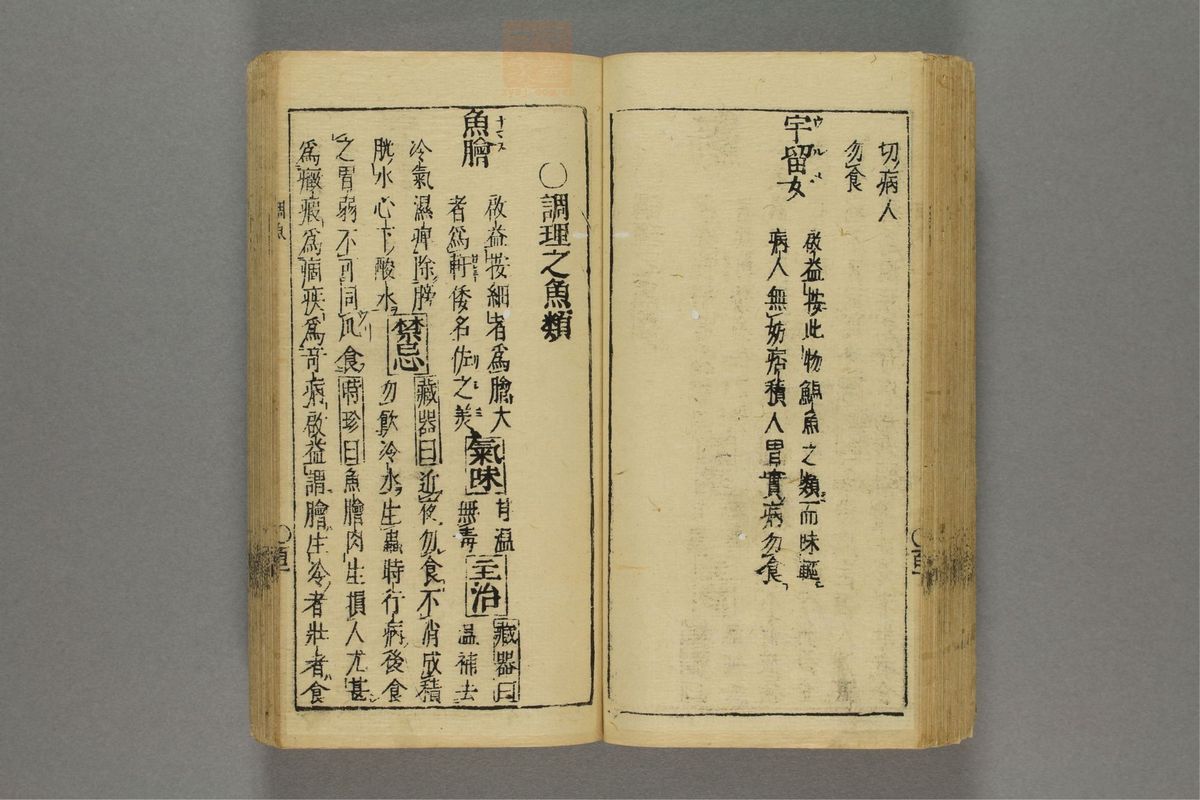 切病人
勿食
宇留女
ウルメ
啟益按此物鰯魚之類而味輕
病人無妨痞積人胃實病勿食
〇調理之魚類
魚膾
ナマス
啟益按細者為膾大
者為軒倭名佐之美
氣味
甘温
無毒
主治
藏器曰
温補去
冷氣濕痺除膀
胱水心下酸水
禁忌
藏器曰近夜勿食不消成積
勿飲冷水生蟲時行病後食
之胃弱不可同瓜食時珍曰魚膾肉生損人尤甚
為癥瘕為痼疾為奇病啟益謂膾生冷者壯者食